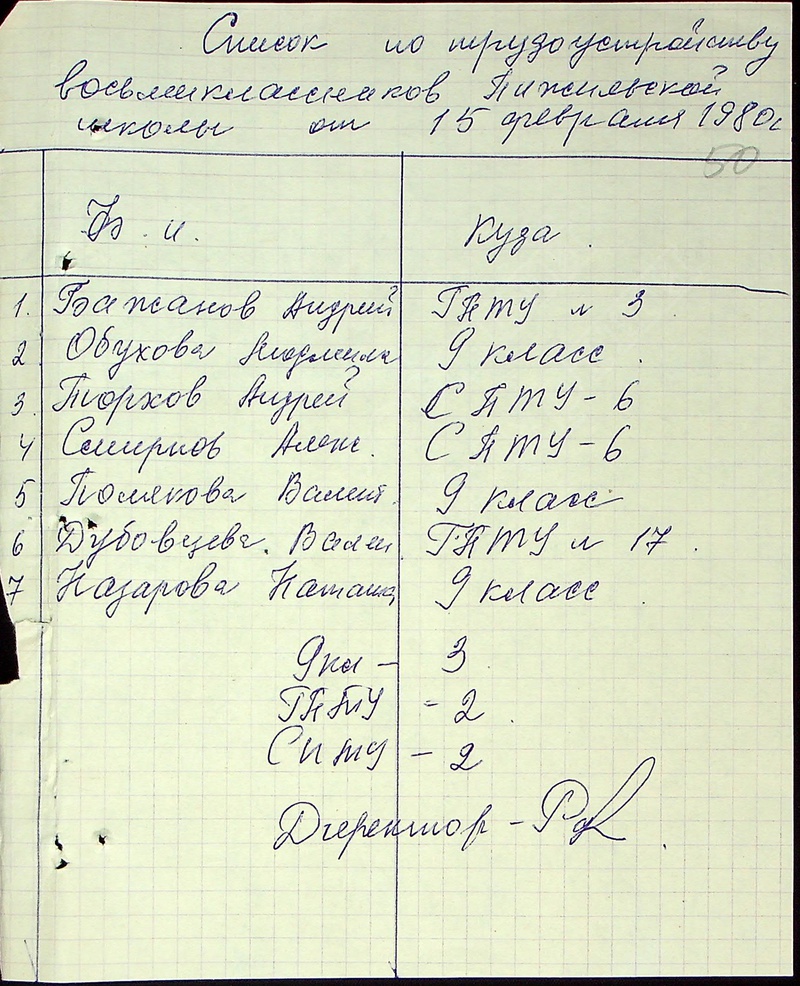 Список по трудоустройству
восьмиклассников Пижильской
школы от 15 февраля 1980г
50
Ф. и. куда.
1. Бажанов Андрей ГПТУ № 3.
2 Обухова Людмила 9 класс.
3. Торхов Андрей СПТУ-6
4 Смирнов Алекс. СПТУ-6
5 Полякова Валент. 9 класс
6 Дубовцева. Вален. ГПТУ № 17.
7 Назарова Наташа 9 класс.
9 кл - 3
ГПТУ - 2.
СПТУ - 2
Директор -